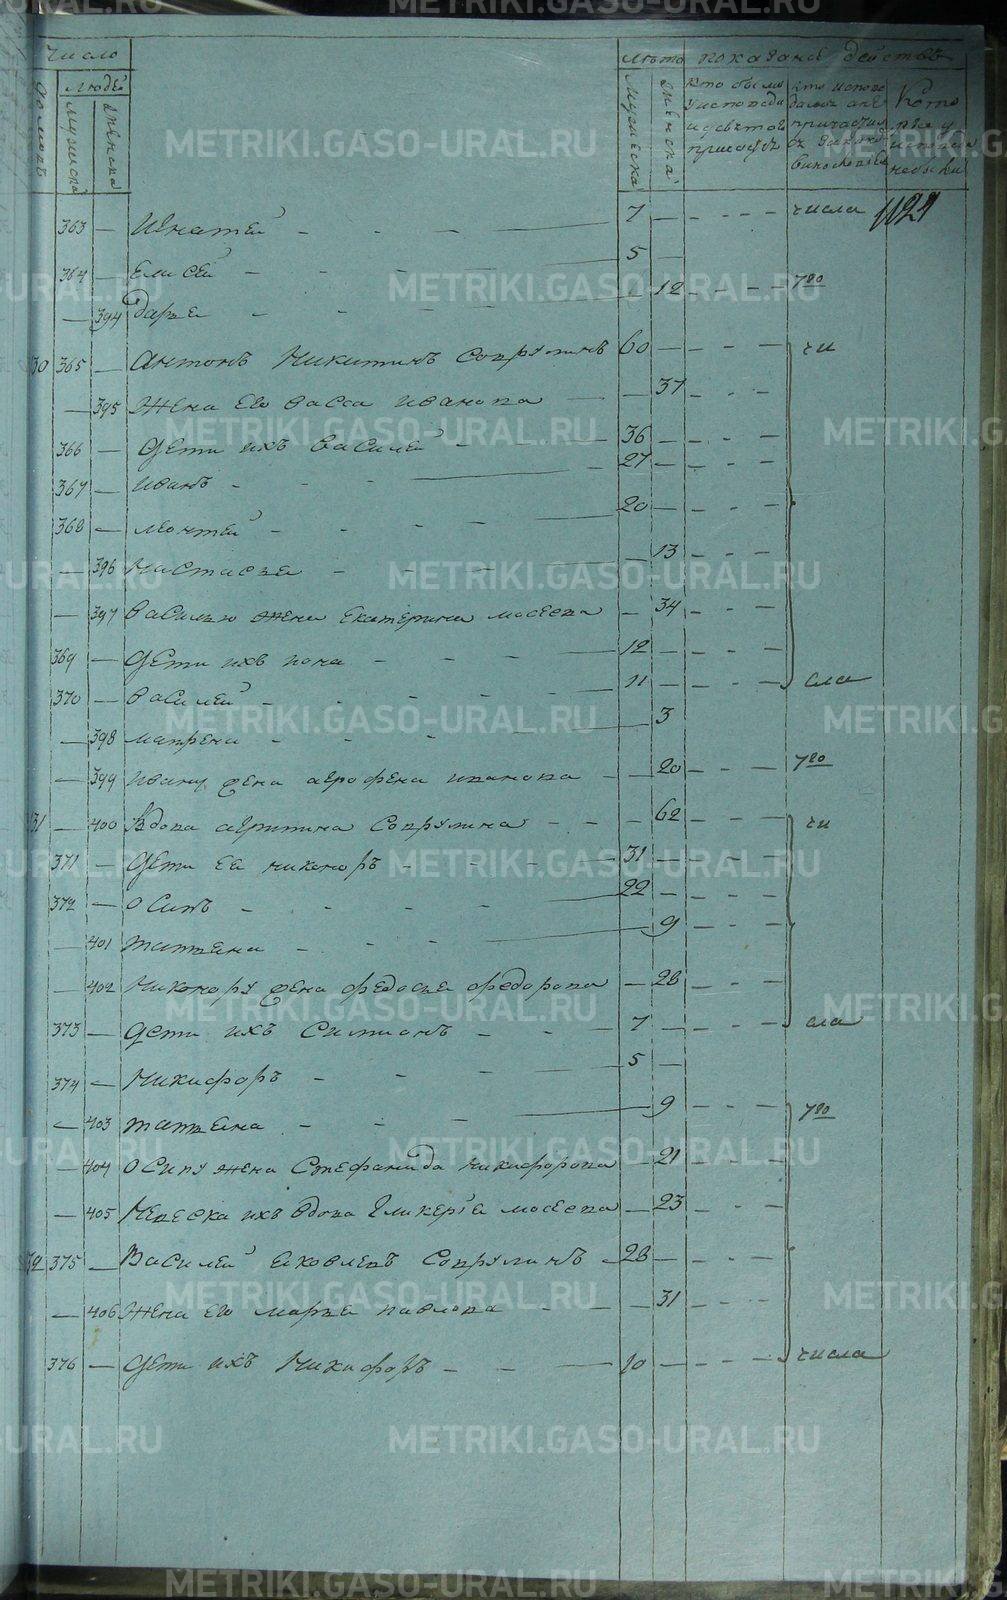 число
людей
домовъ
мужеска
женска
лѣта
показание действъ
мужеска
женска
кто были у исповеди и святого причастія
кто исповедался а не причастился
Кото
1124
363 — Игнатей 7 числа
364 — Елисей 5
— 394 дарья 12 780
130 365 — Антонъ Никитинъ Сопрунинъ 60 чи
— 395 Жена его васса иванова 37
366 — дети ихъ василей 36
367 — иванъ 27
368 — леонтей 20
— 396 Настасья 13
— 397 василью жена екатерина мосеева 34
369 — дети ихъ иона 12
370 — василей 11 сла
— 398 матрена 3
— 399 ивану жена агрофена иванова 20 780
131 — 400 Вдова агрипина Сопрунина 62 чи
371 — дети ея никоноръ 31
372 — осипъ 22
— 401 татьяна 9
— 402 Никонору жена федосья федорова 28
373 — дети ихъ Симионъ 7 сла
374 — Никифоръ 5
— 403 татьяна 9 780
— 404 осипу жена Стефанида никифорова 21
— 405 Невеска ихъ вдова гликерія мосеева 23
132 375 — Василей яковлевъ Сопрунинъ 28
— 406 Жена его марья павлова 31
376 — дети ихъ Никифоръ 10 числа
METRIKI.GASO-URAL.RU